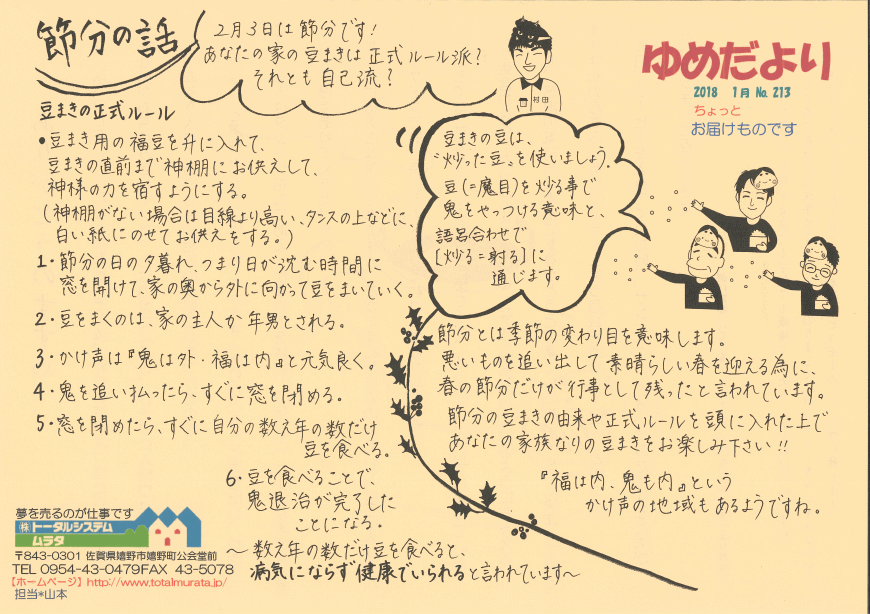 節分の話
2月3日は節分です!
あなたの家の豆まきは正式ルール派?
それとも自己流?
村田
ゆめだより
2018 1月 No. 213
ちょっと
お届けものです
豆まきの正式ルール
•豆まき用の福豆を升に入れて、
豆まきの直前まで神棚にお供えして、
神様の力を宿すようにする。
(神棚がない場合は目線より高い、タンスの上などに、
白い紙にのせてお供えをする。)
1・節分の日の夕暮れ、つまり日が沈む時間に
窓を開けて、家の奥から外に向かって豆をまいていく。
2・豆をまくのは、家の主人か年男とされる。
3・かけ声は『鬼は外・福は内』と元気良く。
4・鬼を追い払ったら、すぐに窓を閉める。
5・窓を閉めたら、すぐに自分の数え年の数だけ
豆を食べる。
6・豆を食べることで、
鬼退治が完了した
ことになる。
〜数え年の数だけ豆を食べると、
病気にならず健康でいられると言われています〜
豆まきの豆は、
“炒った豆〟を使いましょう。
豆(=魔目)を炒る事で
鬼をやっつける意味と、
語呂合わせで
[炒る=射る]に
通じます。
節分とは季節の変わり目を意味します。
悪いものを追い出して素晴らしい春を迎える為に、
春の節分だけが行事として残ったと言われています。
節分の豆まきの由来や正式ルールを頭に入れた上で
あなたの家族なりの豆まきをお楽しみ下さい!!
『福は内、鬼も内』という
かけ声の地域もあるようですね。
夢を売るのが仕事です
㈱トータルシステム
ムラタ
〒843-0301 佐賀県嬉野市嬉野町公会堂前
TEL 0954-43-0479FAX 43-5078
【ホームページ】http://www.totalmurata.jp/
担当*山本